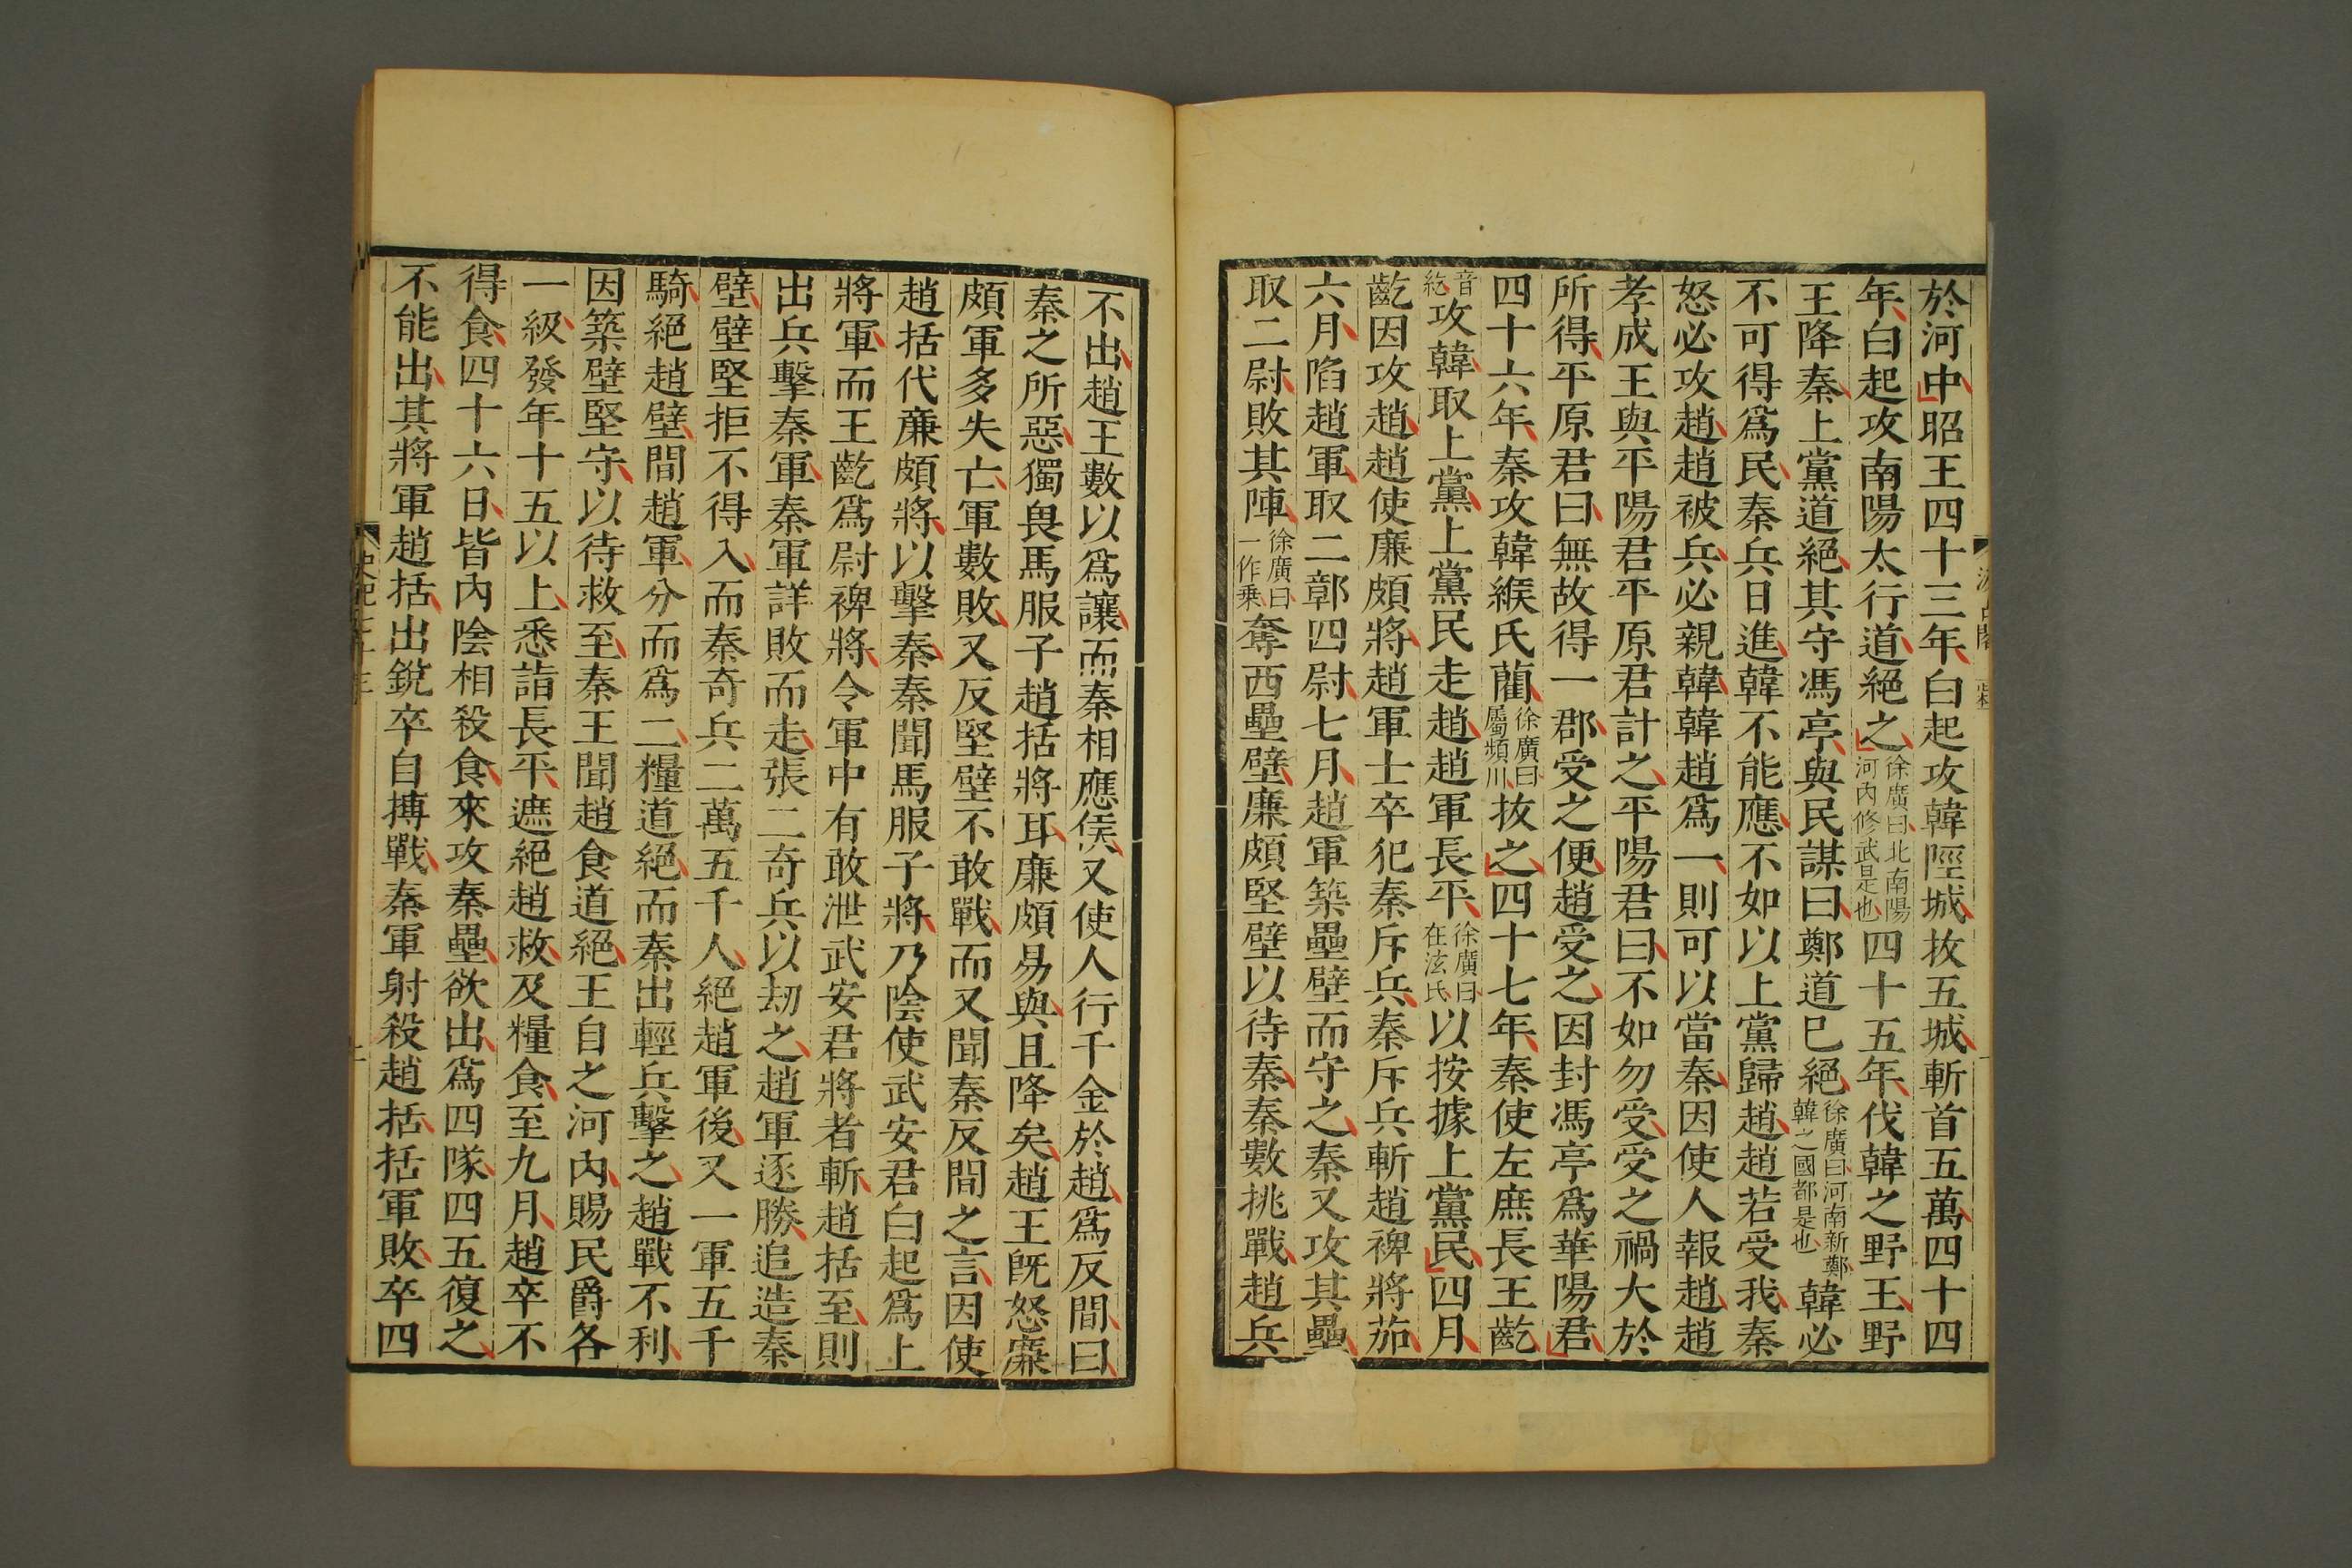 於河中昭王四十三年白起攻韓陘城抜五城斬首五萬四十四
年白起攻南陽太行道絕之徐廣曰北南陽河內修武是也四十五年伐韓之野王野
王降秦上黨道絕其守馮亭與民謀曰鄭道已絕徐廣曰河南新鄭韓之國都是也韓必
不可得爲民秦兵日進韓不能應不如以上黨歸趙趙若受我秦
怒必攻趙趙被兵必親韓韓趙爲一則可以當秦因使人報趙趙
孝成王與平陽君平原君計之平陽君曰不如勿受受之禍大於
所得平原君曰無故得一郡受之便趙受之因封馮亭爲華陽君
四十六年秦攻韓緱氏藺徐廣曰屬頻川抜之四十七年秦使左庶長王齕
音紇攻韓取上黨上黨民走趙趙軍長平徐廣曰在泫氏以按據上黨民四月
齕因攻趙趙使廉頗將趙軍士卒犯秦斥兵秦斥兵斬趙裨將茄
六月陷趙軍取二鄣四尉七月趙軍築壘壁而守之秦又攻其壘
取二尉敗其陣徐廣曰一作乗奪西壘壁廉頗堅壁以待秦秦數挑戰趙兵
不出趙王數以爲讓而秦相應侯又使人行千金於趙爲反間曰
秦之所惡獨畏馬服子趙括將耳廉頗易與且降矣趙王旣怒廉
頗軍多失亡軍數敗又反堅壁不敢戰而又聞秦反間之言因使
趙括代廉頗將以擊秦秦聞馬服子將乃陰使武安君白起爲上
將軍而王齕爲尉裨將令軍中有敢泄武安君將者斬趙括至則
出兵擊秦軍秦軍詳敗而走張二奇兵以劫之趙軍逐勝追造秦
壁壁堅拒不得入而秦奇兵二萬五千人絕趙軍後又一軍五千
騎絕趙壁間趙軍分而爲二糧道絕而秦出輕兵擊之趙戰不利
因築壁堅守以待救至秦王聞趙食道絕王自之河內賜民爵各
一級發年十五以上悉詣長平遮絕趙救及糧食至九月趙卒不
得食四十六日皆內陰相殺食來攻秦壘欲出爲四隊四五復之
不能出其將軍趙括出銳卒自搏戰秦軍射殺趙括括軍敗卒四